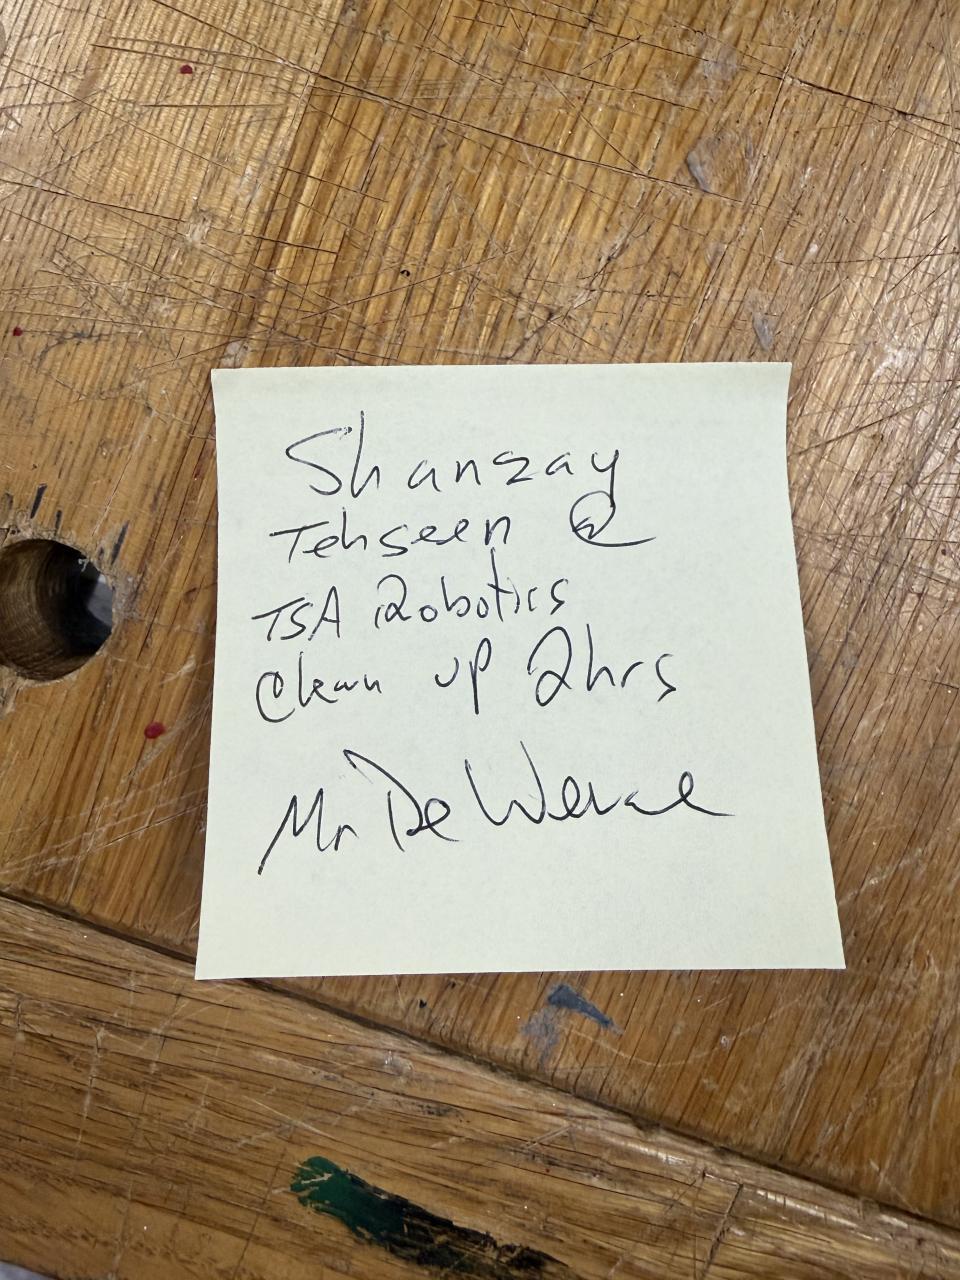 Shanzay
Tehseen @
TSA Robotics
Clean up 2hrs
Mr De